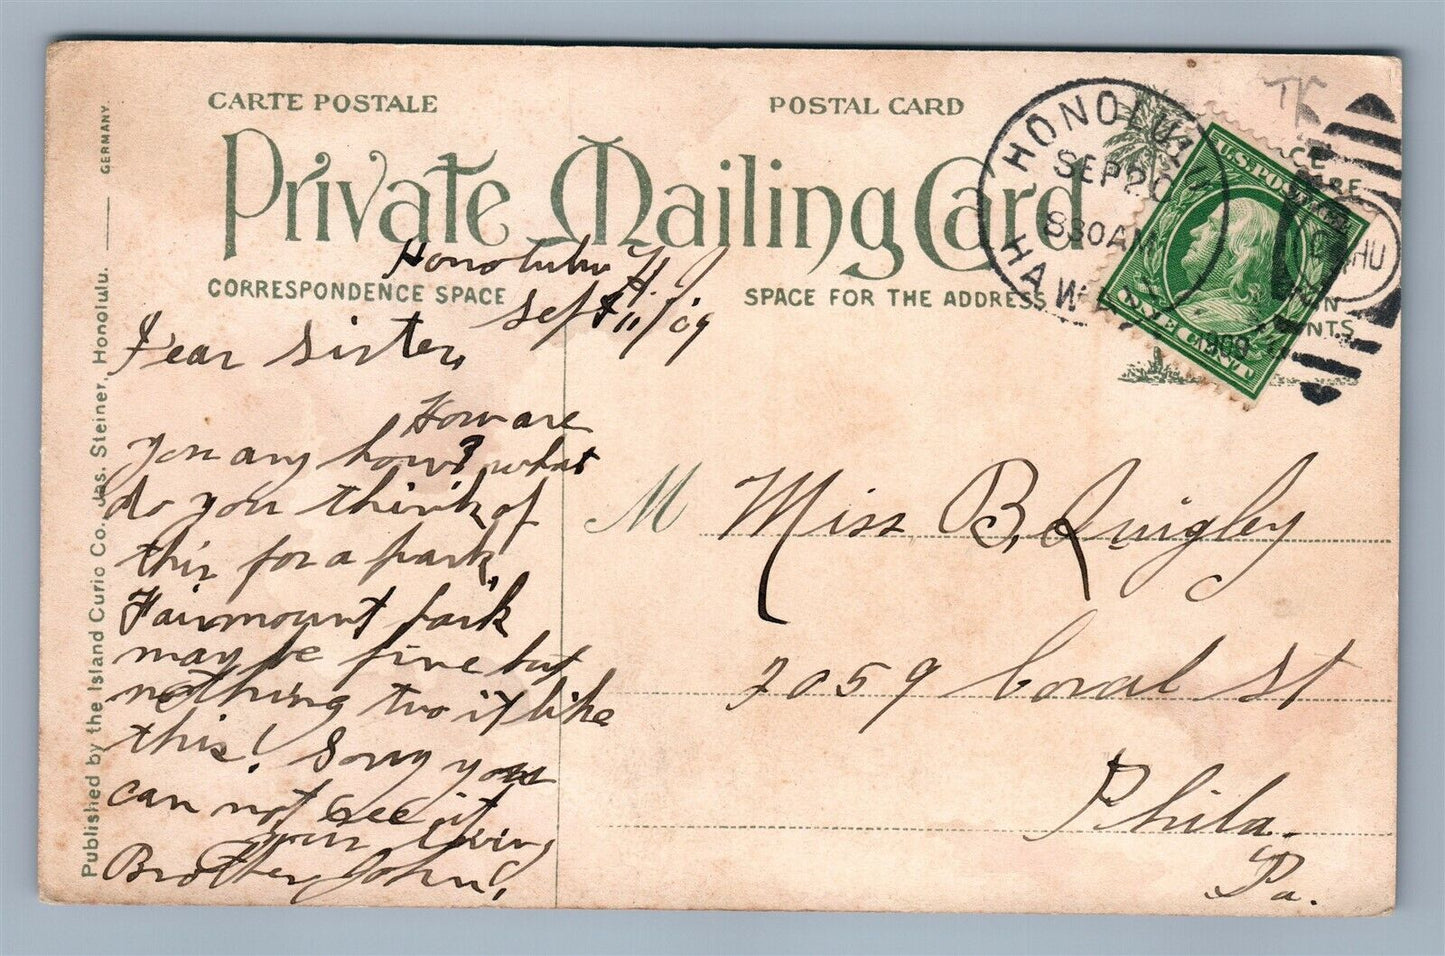 CARTE POSTALE
POSTAL CARD
Private Mailing Card
CORRESPONDENCE SPACE
SPACE FOR THE ADDRESS
HONOLULU
SEP 20
830 AM
HAWAII
1909
U.S. POSTAGE
ONE CENT
TK
Honolulu H.I.
Sept 11/09
Dear Sister,
How are
you any how? what
do you think of
this for a park,
Fairmount park
may be fine but
nothing two it like
this! Sorry you
can not see it
your loving
Brother John,
M Miss B. Quigley
7059 Coral St
Phila.
Pa.
Published by the Island Curio Co. Jas. Steiner, Honolulu. GERMANY